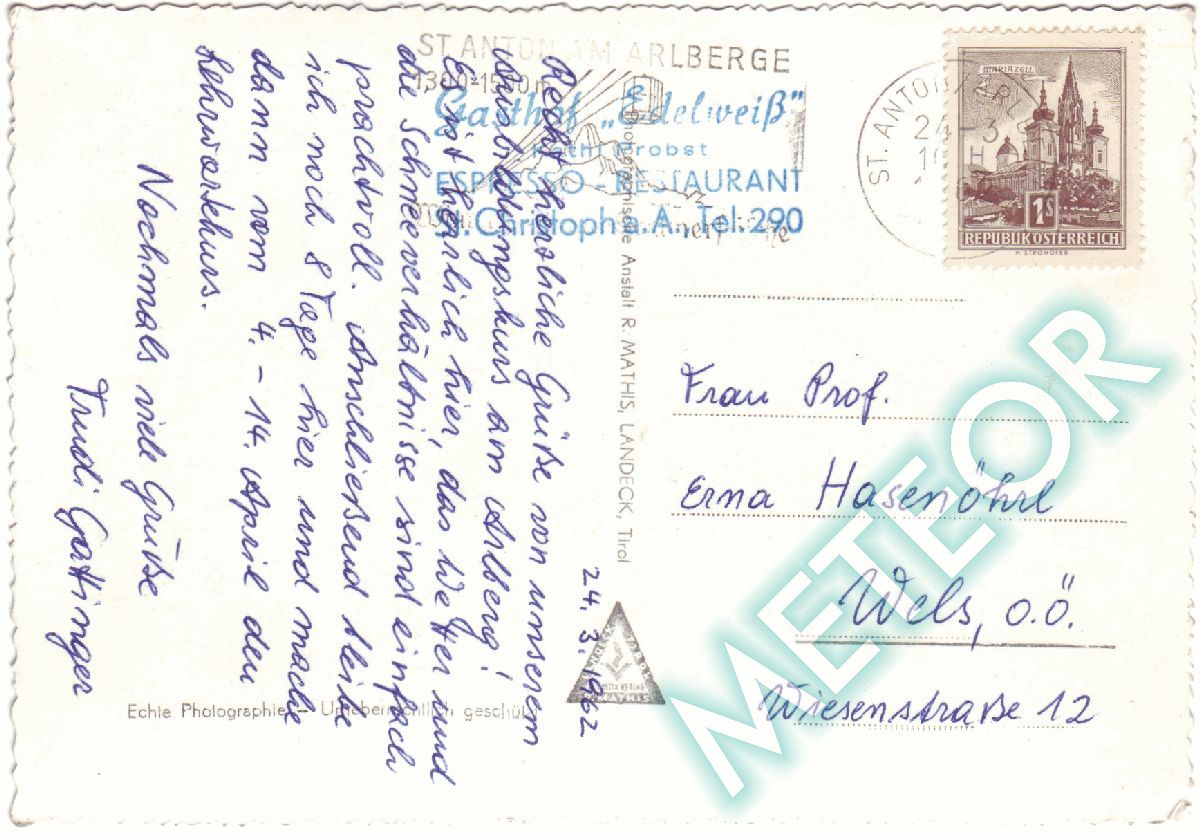 ST. ANTON AM ARLBERGE
1300-1500 m
Gasthof „Edelweiß"
Kathi Probst
ESPRESSO - RESTAURANT
St. Christoph a. A., Tel. 290
ST. ANTON
ARL
24-3
MARIAZELL
1S
REPUBLIK ÖSTERREICH
H. STROHOFER
Recht herzliche Grüße von unserem
am Arlberg!
Es ist herrlich hier, das Wetter und
die Schneeverhältnisse sind einfach
prachtvoll. Anschließend bleibe
ich noch 8 Tage hier und mache
dann vom 4. - 14. April den
Lehrwartekurs.
Nochmals viele Grüße
Trudi Gattinger
24. 3. 1962
Photographische Anstalt R. MATHIS, LANDECK, Tirol
VERLAG
MATHIS
Echte Photographie - Urheberrechtlich geschützt
Frau Prof.
Erna Hasenöhrl
Wels, o.ö.
Wiesenstraße 12
METEOR